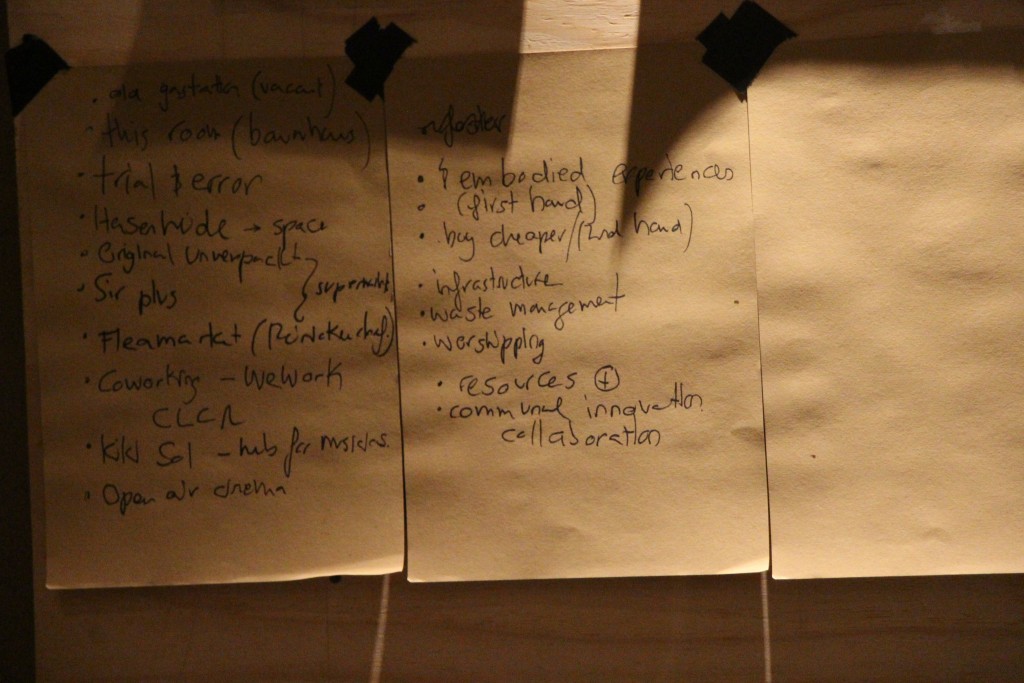 • old gastation (vacant)
• this room (bauwnhaus)
• trial & error
• Hasenheide → space
• Original Unverpackt
• Sir plus } supermarket
• Fleamarkat
• Coworking - WeWork
CLCR
• Kiki Sol - hub for
• Open air cinema
• & embodied experiences
• (first hand)
• buy cheaper/(2nd hand)
• infrastructure
• waste management
• worshipping
• resources ⊕
• communal innovation
collaboration